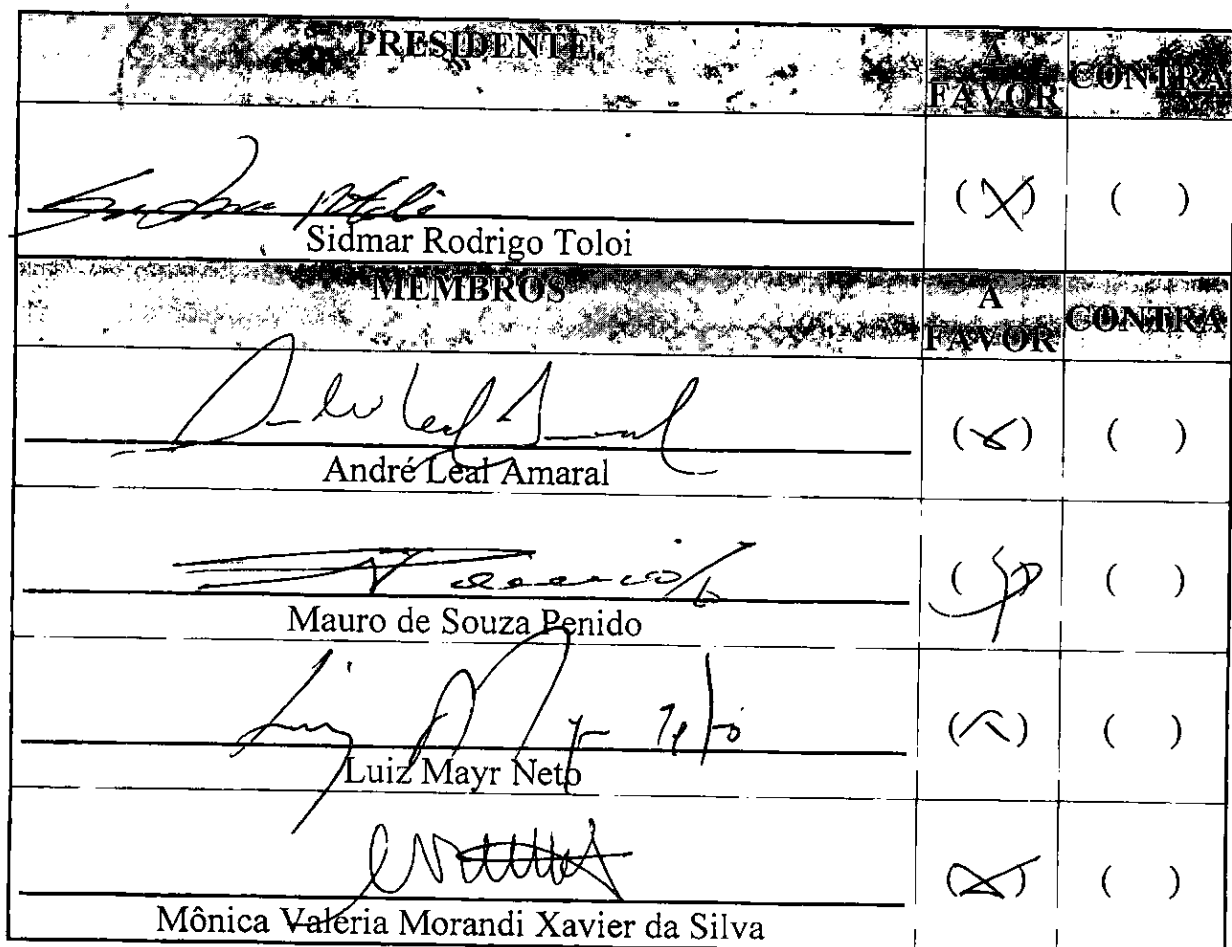 PRESIDENTE A FAVOR CONTRA
(X) ( )
Sidmar Rodrigo Toloi
MEMBROS A FAVOR CONTRA
(X) ( )
André Leal Amaral
( ) ( )
Mauro de Souza Penido
( ) ( )
Luiz Mayr Neto
(X) ( )
Mônica Valéria Morandi Xavier da Silva